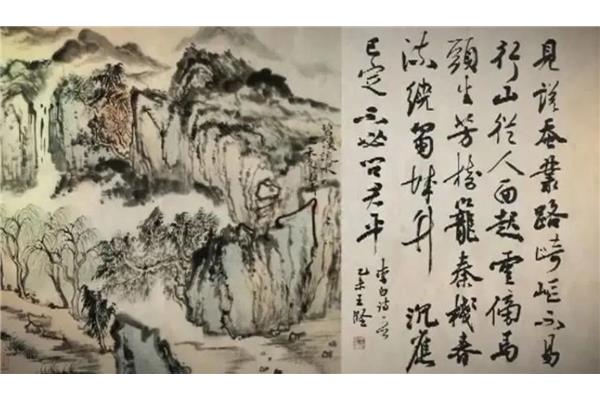 見說蚕叢路崎嶇不易
行山從人面起雲傍馬
頭生芳樹籠秦棧春
流繞蜀城升沉應
已定不必問君平
李白詩一首
乙未王